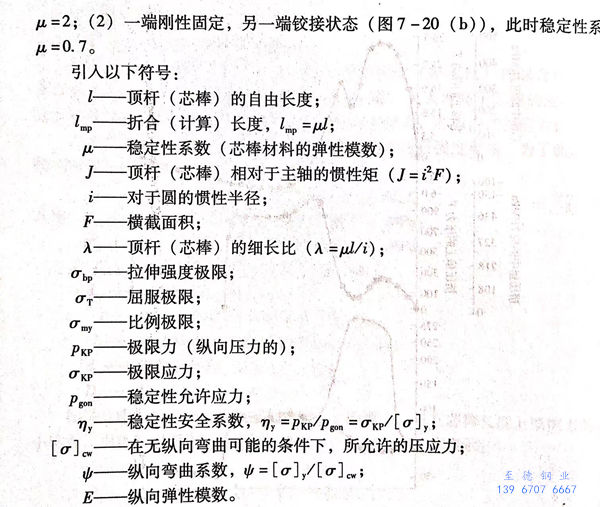 μ=2；（2）一端刚性固定，另一端铰接状态（图7-20（b）），此时稳定性系
μ=0.7。
引入以下符号：
l——顶杆（芯棒）的自由长度；
lmp——折合（计算）长度，lmp=μl；
μ——稳定性系数（芯棒材料的弹性模数）；
J——顶杆（芯棒）相对于主轴的惯性矩（J=i²F）；
i——对于圆的惯性半径；
F——横截面积；
λ——顶杆（芯棒）的细长比（λ=μl/i）；
σbp——拉伸强度极限；
σT——屈服极限；
σmy——比例极限；
pKP——极限力（纵向压力的）；
σKP——极限应力；
pgon——稳定性允许应力；
ηy——稳定性安全系数，ηy=pKP/pgon=σKP/[σ]y；
[σ]cw——在无纵向弯曲可能的条件下，所允许的压应力；
ψ——纵向弯曲系数，ψ=[σ]y/[σ]cw；
E——纵向弹性模数。
至德钢业
139 6707 6667